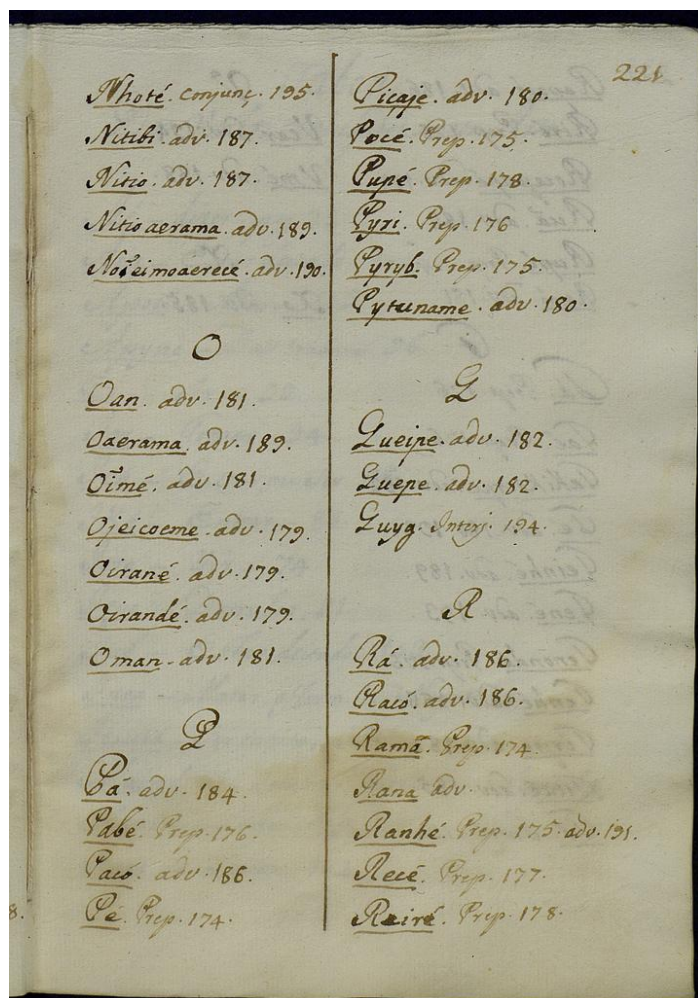 221
Nhoté. conjunç. 195.
Nitibi. adv. 187.
Nitio. adv. 187.
Nitio aerama. adv. 189.
adv. 190.
O
Oan. adv. 181.
Oaerama. adv. 189.
Oĩmé. adv. 181.
Ojeicoeme. adv. 179.
Oirané. adv. 179.
Oirandé. adv. 179.
Oman. adv. 181.
P
Pá. adv. 184.
Pabé. Prep. 176.
Pacó. adv. 186.
Pé. Prep. 174.
Piçaje. adv. 180.
Pocé. Prep. 175.
Pupé. Prep. 178.
Pyri. Prep. 176
Pyryb. Prep. 175.
Pytuname. adv. 180.
Q
Queipe. adv. 182.
Quepe. adv. 182.
Quyg. Interj. 194.
R
Rá. adv. 186.
Racó. adv. 186.
Ramã. Prep. 174.
Rana adv.
Ranhé. Prep. 175. adv. 191.
Recé. Prep. 177.
Rairé. Prep. 178.
8.